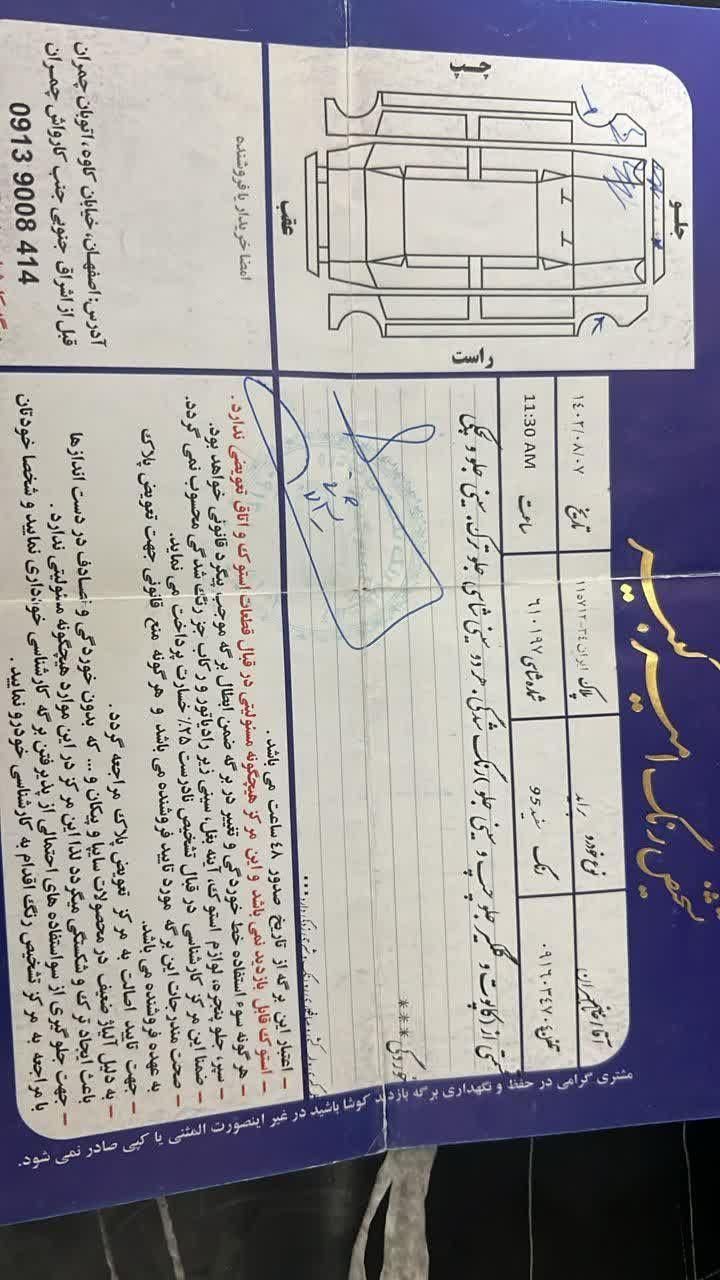 تشخیص رنگ امیرکبیر
آقا/خانم
تلفن: ۰۹۱۶۰۳۴۷۰۴
نوع خودرو پراید
رنگ سفید 95
پلاک ایران ۲۴-۱۱۵۷۱۲
شماره شاسی ۶۱۰۱۹۷
تاریخ ۱۴۰۲/۰۸/۰۷
ساعت 11:30 AM
از کاپوت و گلگیر جلو چپ و سینی جلو رنگ شدگی. هر دو سینی شاسی جلو ترک. سینی جلو
خوردگی ***
جلو
چپ
راست
عقب
امضا خریدار یا فروشنده
آدرس: اصفهان، خیابان کاوه، اتوبان چمران
قبل از اشراق جنوبی جنب کارواش چمران
0913 9008 414
– اعتبار این برگه از تاریخ صدور ٤٨ ساعت می باشد.
– استوک قابل بازدید نمی باشد و این مرکز هیچگونه مسئولیتی در قبال قطعات استوک و اتاق تعویضی ندارد.
– هر گونه سوء استفاده خط خوردگی و تغییر در برگه ضمن ابطال برگه موجب پیگرد قانونی خواهد بود.
– سپر، جلو پنجره، لوازم استوک، آینه بغل، سینی زیر رادیاتور و رکاب جز رنگ شدگی محسوب نمی گردد.
– ضمنا این مرکز کارشناسی در قبال تشخیص نادرست ۲۵٪ خسارت پرداخت می نماید.
– صحت مندرجات این برگه مورد تایید فروشنده می باشد و هر گونه منع قانونی جهت تعویض پلاک
به عهده فروشنده می باشد.
– جهت تایید اصالت به مرکز تعویض پلاک مراجعه گردد.
– به دلیل آلیاژ ضعیف در محصولات سایپا و پیکان و ... که بدون خوردگی و تصادف در دست اندازها
باعث ایجاد ترک و شکستگی میگردد لذا این مرکز در این موارد هیچگونه مسئولیتی ندارد.
– جهت جلوگیری از سواستفاده های احتمالی از پذیرفتن برگه کارشناسی خودداری نمایید و شخصا خودتان
با مراجعه به مرکز تشخیص رنگ اقدام به کارشناسی خودرو نمایید.
مشتری گرامی در حفظ و نگهداری برگه بازدید کوشا باشید در غیر اینصورت المثنی یا کپی صادر نمی شود.